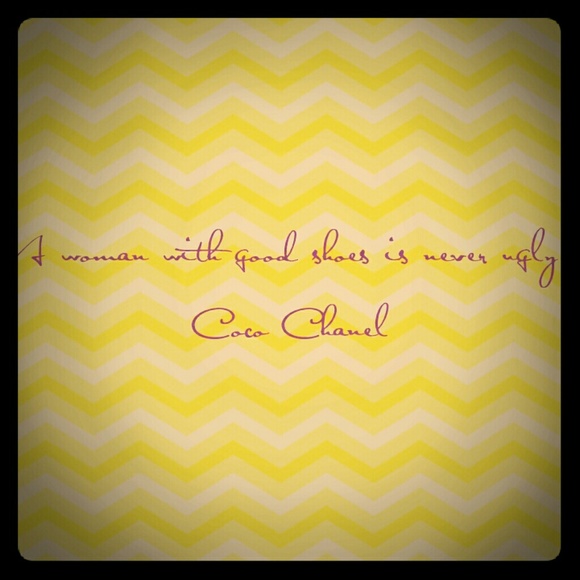 A woman with good shoes is never ugly
Coco Chanel